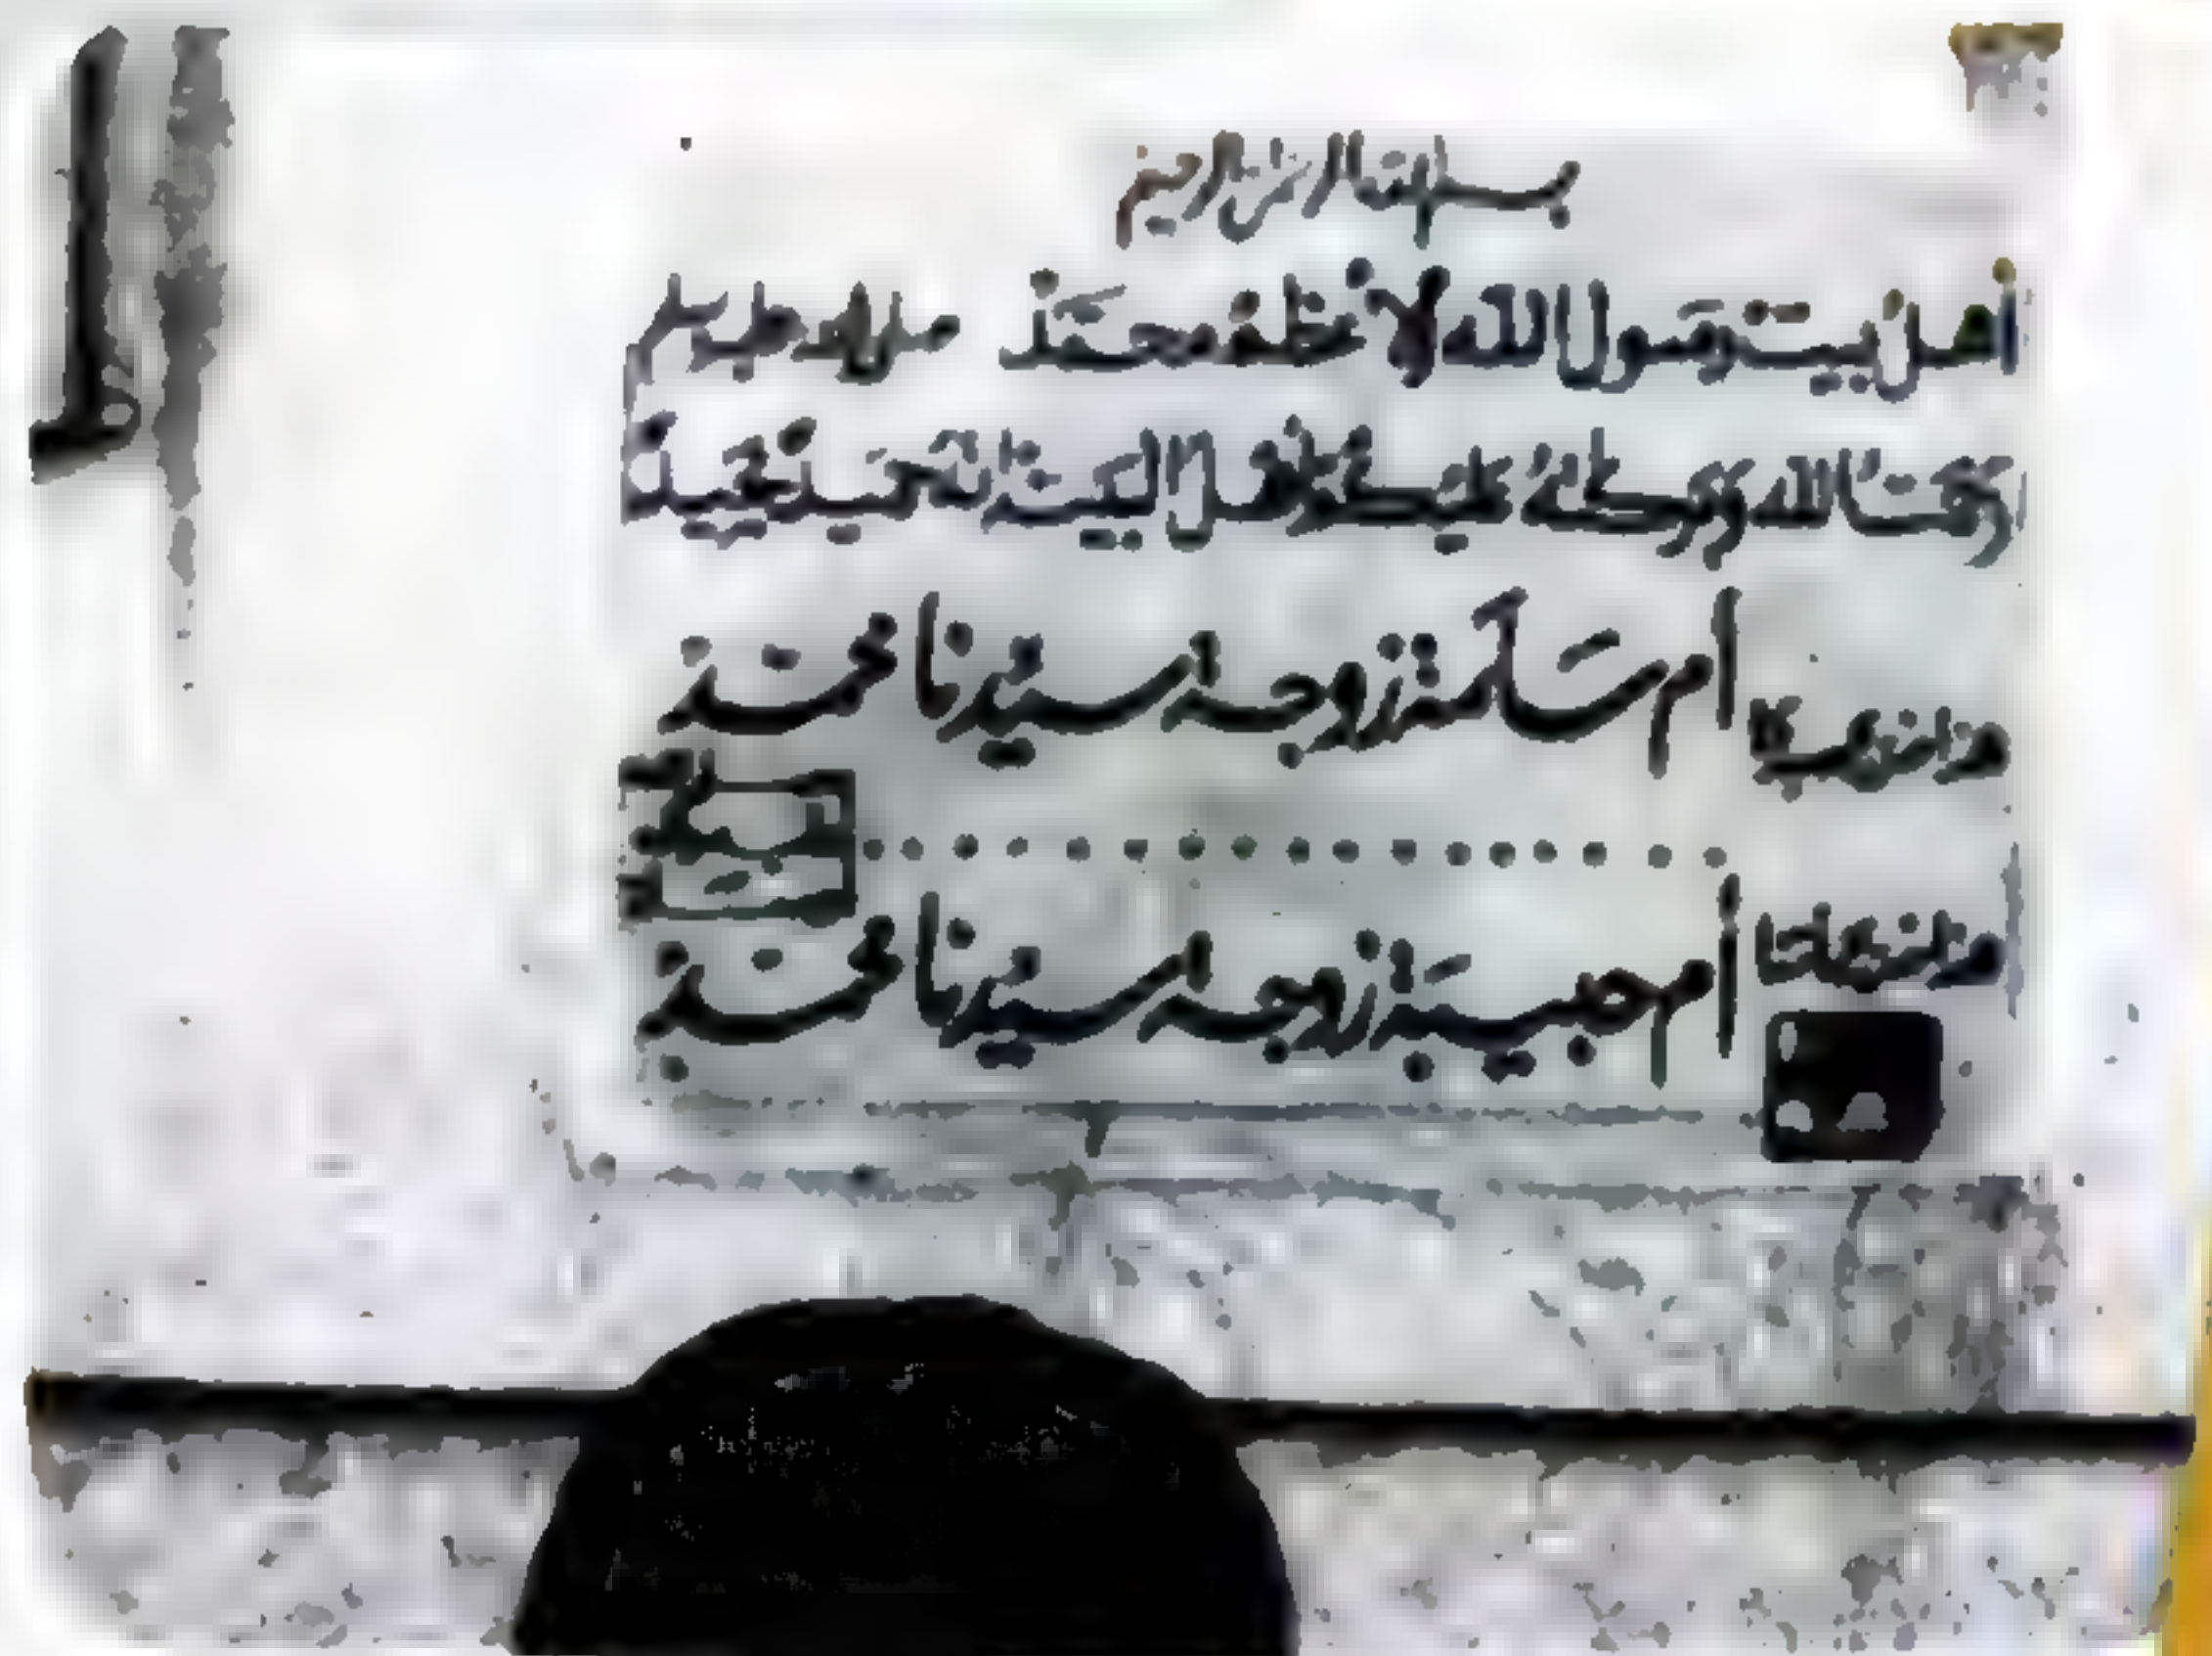 بسم الله الرحمن الرحيم
أهل بيت رسول الله لأعظم محمد صلى الله عليه وسلم
رحمت الله وبركاته عليكم أهل البيت إنه حميد مجيد
أم سلمة زوجة سيدنا محمد
أم حبيبة زوجة سيدنا محمد